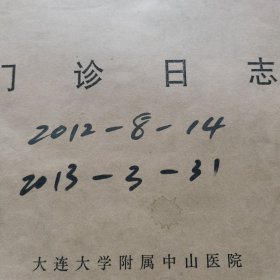 门诊日志
2012-8-14
2013-3-31
大连大学附属中山医院